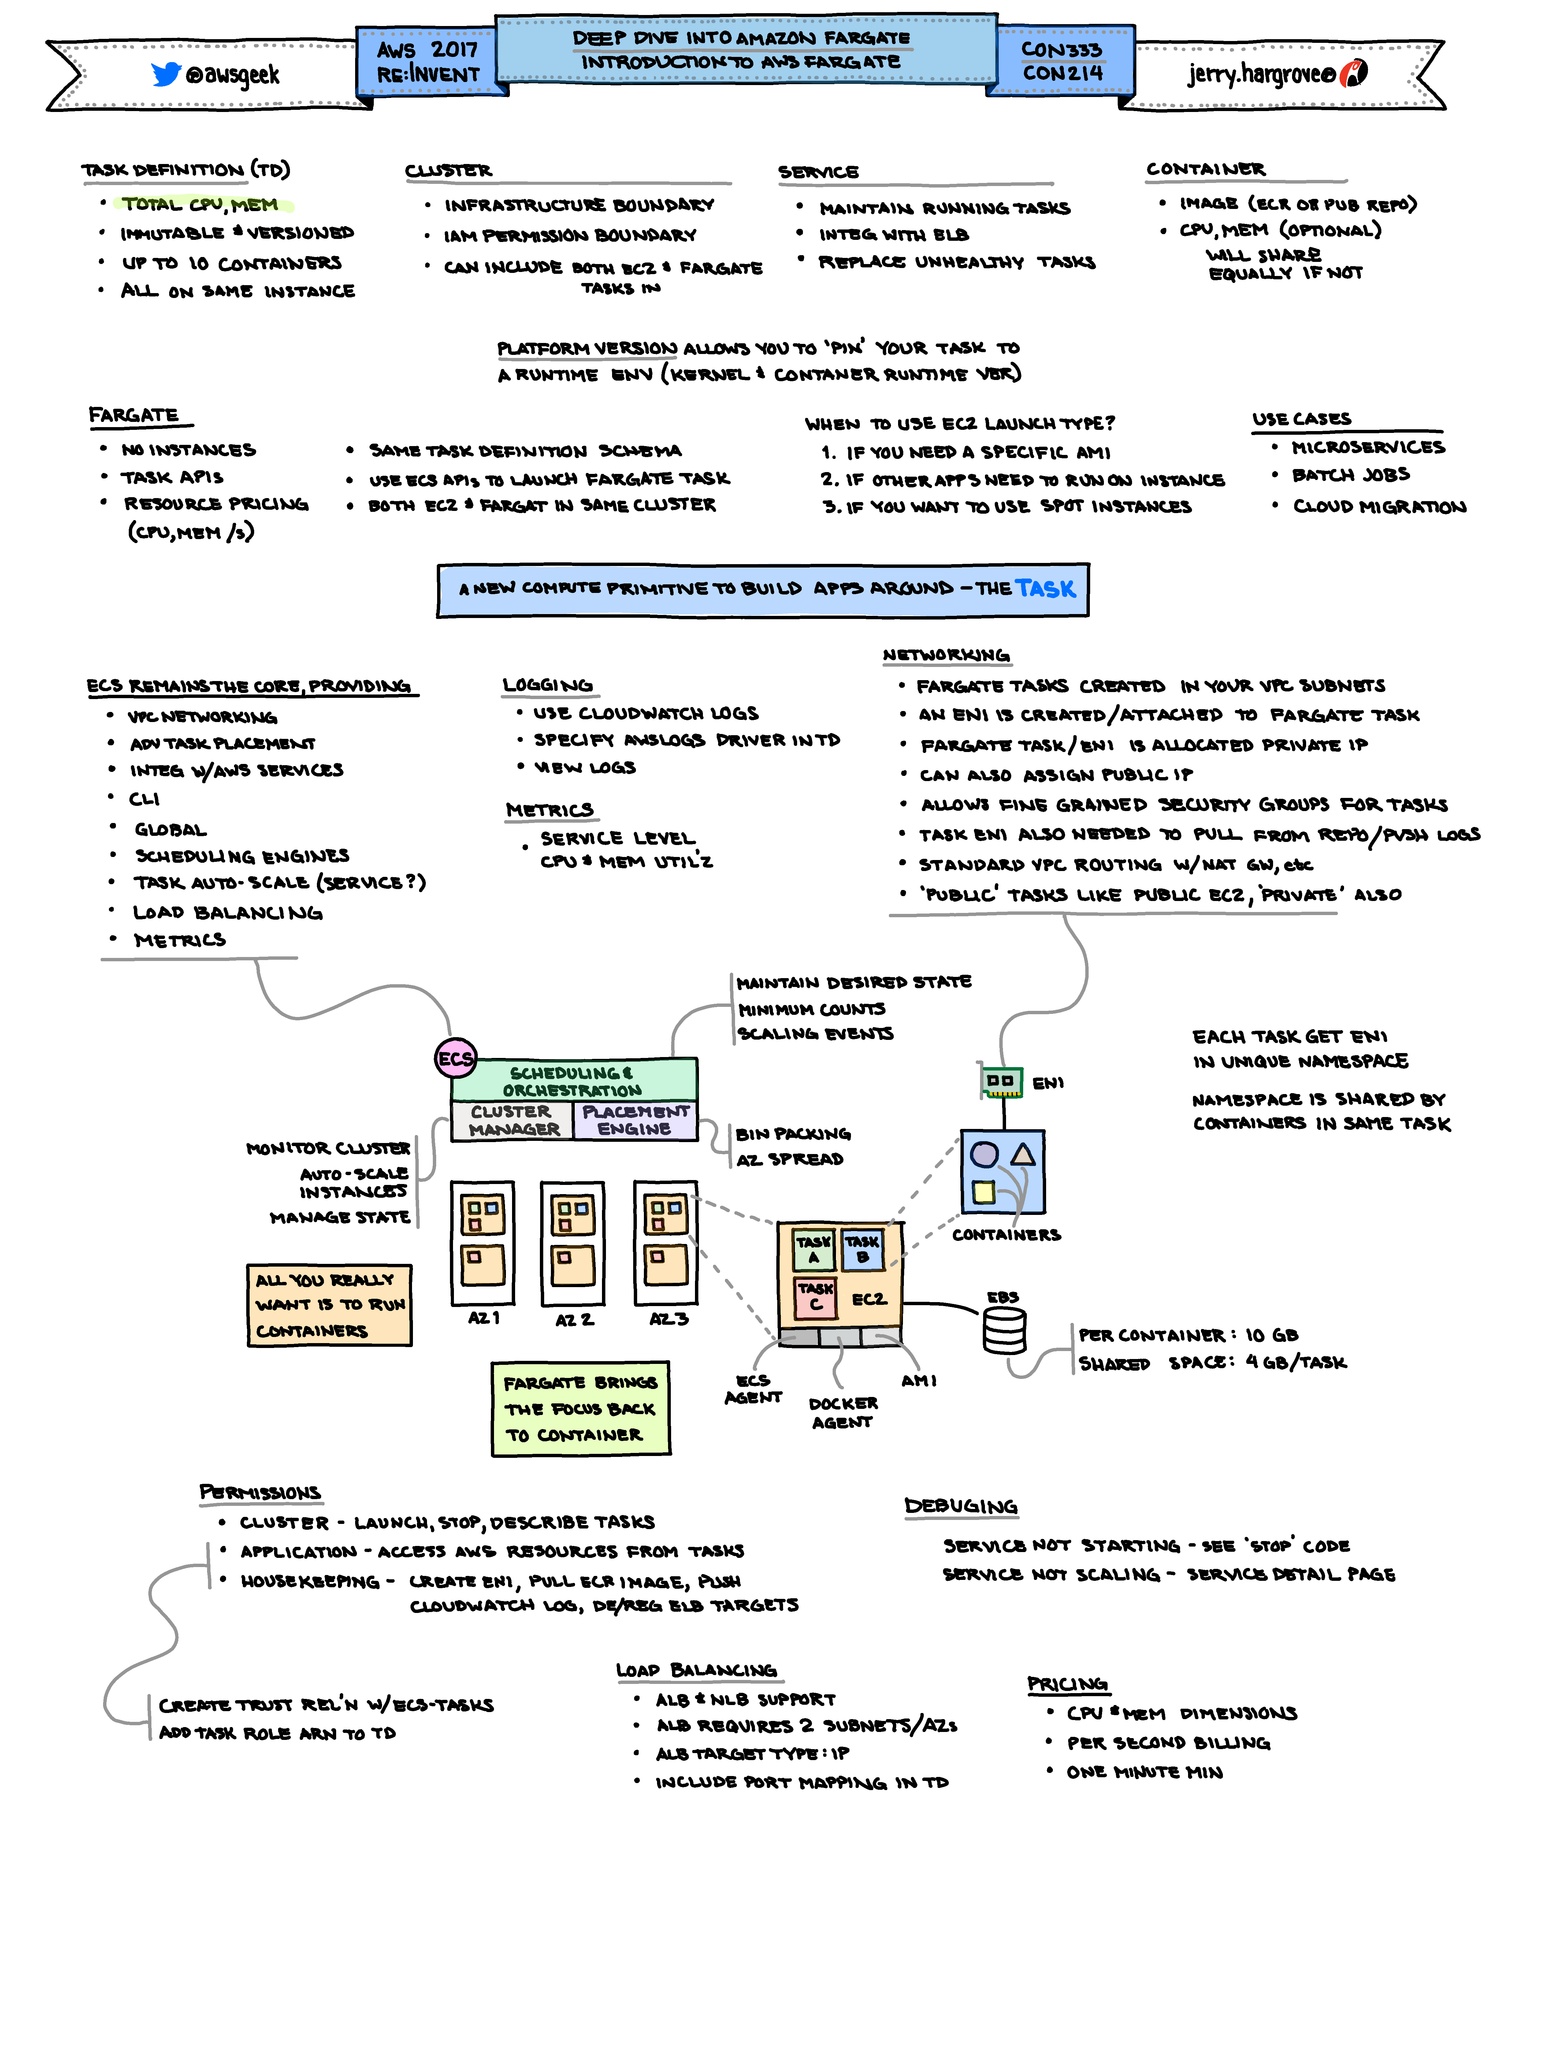 @awsgeek
AWS 2017
RE:INVENT
DEEP DIVE INTO AMAZON FARGATE
INTRODUCTION TO AWS FARGATE
CON333
CON214
jerry.hargrove@
TASK DEFINITION (TD)
• TOTAL CPU, MEM
• IMMUTABLE & VERSIONED
• UP TO 10 CONTAINERS
• ALL ON SAME INSTANCE
CLUSTER
• INFRASTRUCTURE BOUNDARY
• IAM PERMISSION BOUNDARY
• CAN INCLUDE BOTH EC2 & FARGATE
TASKS IN
SERVICE
• MAINTAIN RUNNING TASKS
• INTEG WITH ELB
• REPLACE UNHEALTHY TASKS
CONTAINER
• IMAGE (ECR OR PUB REPO)
• CPU, MEM (OPTIONAL)
WILL SHARE
EQUALLY IF NOT
PLATFORM VERSION ALLOWS YOU TO 'PIN' YOUR TASK TO
A RUNTIME ENV (KERNEL & CONTANER RUNTIME VER)
FARGATE
• NO INSTANCES
• TASK APIS
• RESOURCE PRICING
(CPU, MEM /S)
• SAME TASK DEFINITION SCHEMA
• USE ECS APIs TO LAUNCH FARGATE TASK
• BOTH EC2 & FARGAT IN SAME CLUSTER
WHEN TO USE EC2 LAUNCH TYPE?
1. IF YOU NEED A SPECIFIC AMI
2. IF OTHER APPS NEED TO RUN ON INSTANCE
3. IF YOU WANT TO USE SPOT INSTANCES
USE CASES
• MICROSERVICES
• BATCH JOBS
• CLOUD MIGRATION
A NEW COMPUTE PRIMITIVE TO BUILD APPS AROUND - THE TASK
ECS REMAINS THE CORE, PROVIDING
• VPC NETWORKING
• ADV TASK PLACEMENT
• INTEG W/AWS SERVICES
• CLI
• GLOBAL
• SCHEDULING ENGINES
• TASK AUTO-SCALE (SERVICE?)
• LOAD BALANCING
• METRICS
LOGGING
• USE CLOUDWATCH LOGS
• SPECIFY AWSLOGS DRIVER IN TD
• VIEW LOGS
METRICS
• SERVICE LEVEL
CPU & MEM UTIL'Z
NETWORKING
• FARGATE TASKS CREATED IN YOUR VPC SUBNETS
• AN ENI IS CREATED/ATTACHED TO FARGATE TASK
• FARGATE TASK/ENI IS ALLOCATED PRIVATE IP
• CAN ALSO ASSIGN PUBLIC IP
• ALLOWS FINE GRAINED SECURITY GROUPS FOR TASKS
• TASK ENI ALSO NEEDED TO PULL FROM REPO/PUSH LOGS
• STANDARD VPC ROUTING W/NAT GW, etc
• 'PUBLIC' TASKS LIKE PUBLIC EC2, 'PRIVATE' ALSO
MAINTAIN DESIRED STATE
MINIMUM COUNTS
SCALING EVENTS
ECS
SCHEDULING &
ORCHESTRATION
CLUSTER
MANAGER
PLACEMENT
ENGINE
BIN PACKING
AZ SPREAD
MONITOR CLUSTER
AUTO-SCALE
INSTANCES
MANAGE STATE
ENI
EACH TASK GET ENI
IN UNIQUE NAMESPACE
NAMESPACE IS SHARED BY
CONTAINERS IN SAME TASK
CONTAINERS
AZ1
AZ2
AZ3
TASK
A
TASK
B
TASK
C
EC2
ECS
AGENT
DOCKER
AGENT
AMI
EBS
PER CONTAINER: 10 GB
SHARED SPACE: 4 GB/TASK
ALL YOU REALLY
WANT IS TO RUN
CONTAINERS
FARGATE BRINGS
THE FOCUS BACK
TO CONTAINER
PERMISSIONS
• CLUSTER - LAUNCH, STOP, DESCRIBE TASKS
• APPLICATION - ACCESS AWS RESOURCES FROM TASKS
• HOUSEKEEPING - CREATE ENI, PULL ECR IMAGE, PUSH
CLOUDWATCH LOG, DE/REG ELB TARGETS
CREATE TRUST REL'N W/ECS-TASKS
ADD TASK ROLE ARN TO TD
DEBUGING
SERVICE NOT STARTING - SEE 'STOP' CODE
SERVICE NOT SCALING - SERVICE DETAIL PAGE
LOAD BALANCING
• ALB & NLB SUPPORT
• ALB REQUIRES 2 SUBNETS/AZs
• ALB TARGET TYPE: IP
• INCLUDE PORT MAPPING IN TD
PRICING
• CPU & MEM DIMENSIONS
• PER SECOND BILLING
• ONE MINUTE MIN